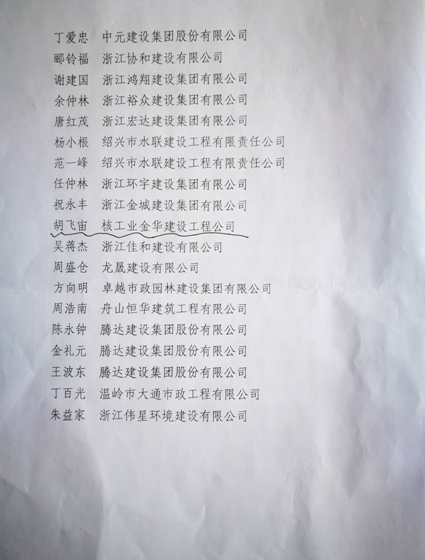 丁爱忠 中元建设集团股份有限公司
郦铃福 浙江协和建设有限公司
谢建国 浙江鸿翔建设集团有限公司
余仲林 浙江裕众建设集团有限公司
唐红茂 浙江宏达建设集团有限公司
杨小根 绍兴市水联建设工程有限责任公司
范一峰 绍兴市水联建设工程有限责任公司
任仲林 浙江环宇建设集团有限公司
祝永丰 浙江金城建设集团有限公司
胡飞宙 核工业金华建设工程公司
吴蒋杰 浙江佳和建设有限公司
周盛仓 龙晟建设有限公司
方向明 卓越市政园林建设集团有限公司
周浩南 舟山恒华建筑工程有限公司
陈永钟 腾达建设集团股份有限公司
金礼元 腾达建设集团股份有限公司
王波东 腾达建设集团股份有限公司
丁百光 温岭市大通市政工程有限公司
朱益家 浙江伟星环境建设有限公司